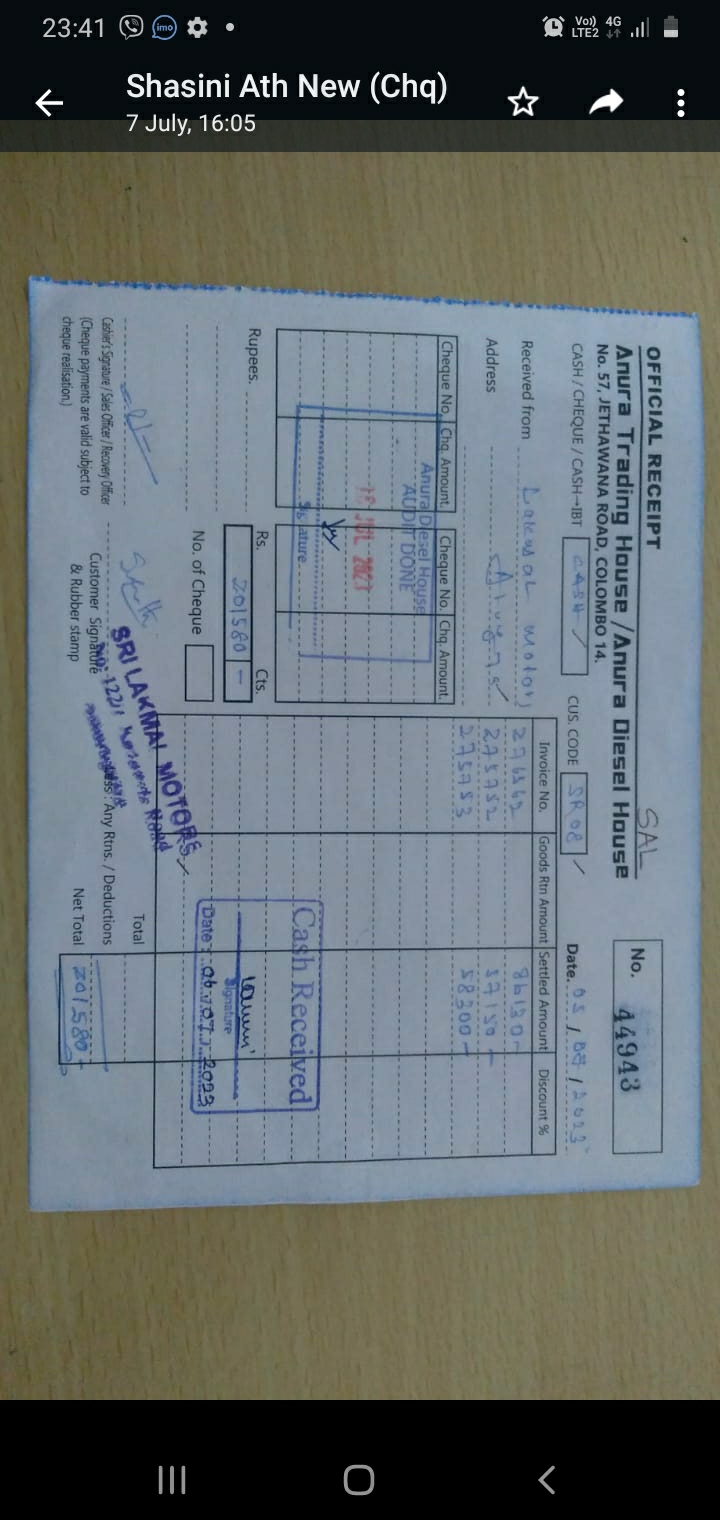 23:41
Vo)) 4G
LTE2
Shasini Ath New (Chq)
7 July, 16:05
OFFICIAL RECEIPT
SAL
No. 44943
Anura Trading House / Anura Diesel House
No. 57, JETHAWANA ROAD, COLOMBO 14.
CASH / CHEQUE / CASH→IBT CASH
CUS. CODE SR08
Date. 05 / / 2023
Received from motors
Address
Cheque No. Chq. Amount. Cheque No. Chq. Amount.
Anura Diesel House
AUDIT DONE
JUL 2023
Signature
Rupees.
Rs. Cts.
201580 –
No. of Cheque
Invoice No. Goods Rtn Amount Settled Amount Discount %
276562 86130 –
275752 57150 –
275753 58300 –
Cash Received
Signature
Date : 06.07.2023
Total
Less : Any Rtns. / Deductions
Net Total 201580 –
Cashier's Signature / Sales Officer / Recovery Officer
(Cheque payments are valid subject to
cheque realisation.)
Customer Signature
& Rubber stamp
SRI LAKMAL MOTORS
Road